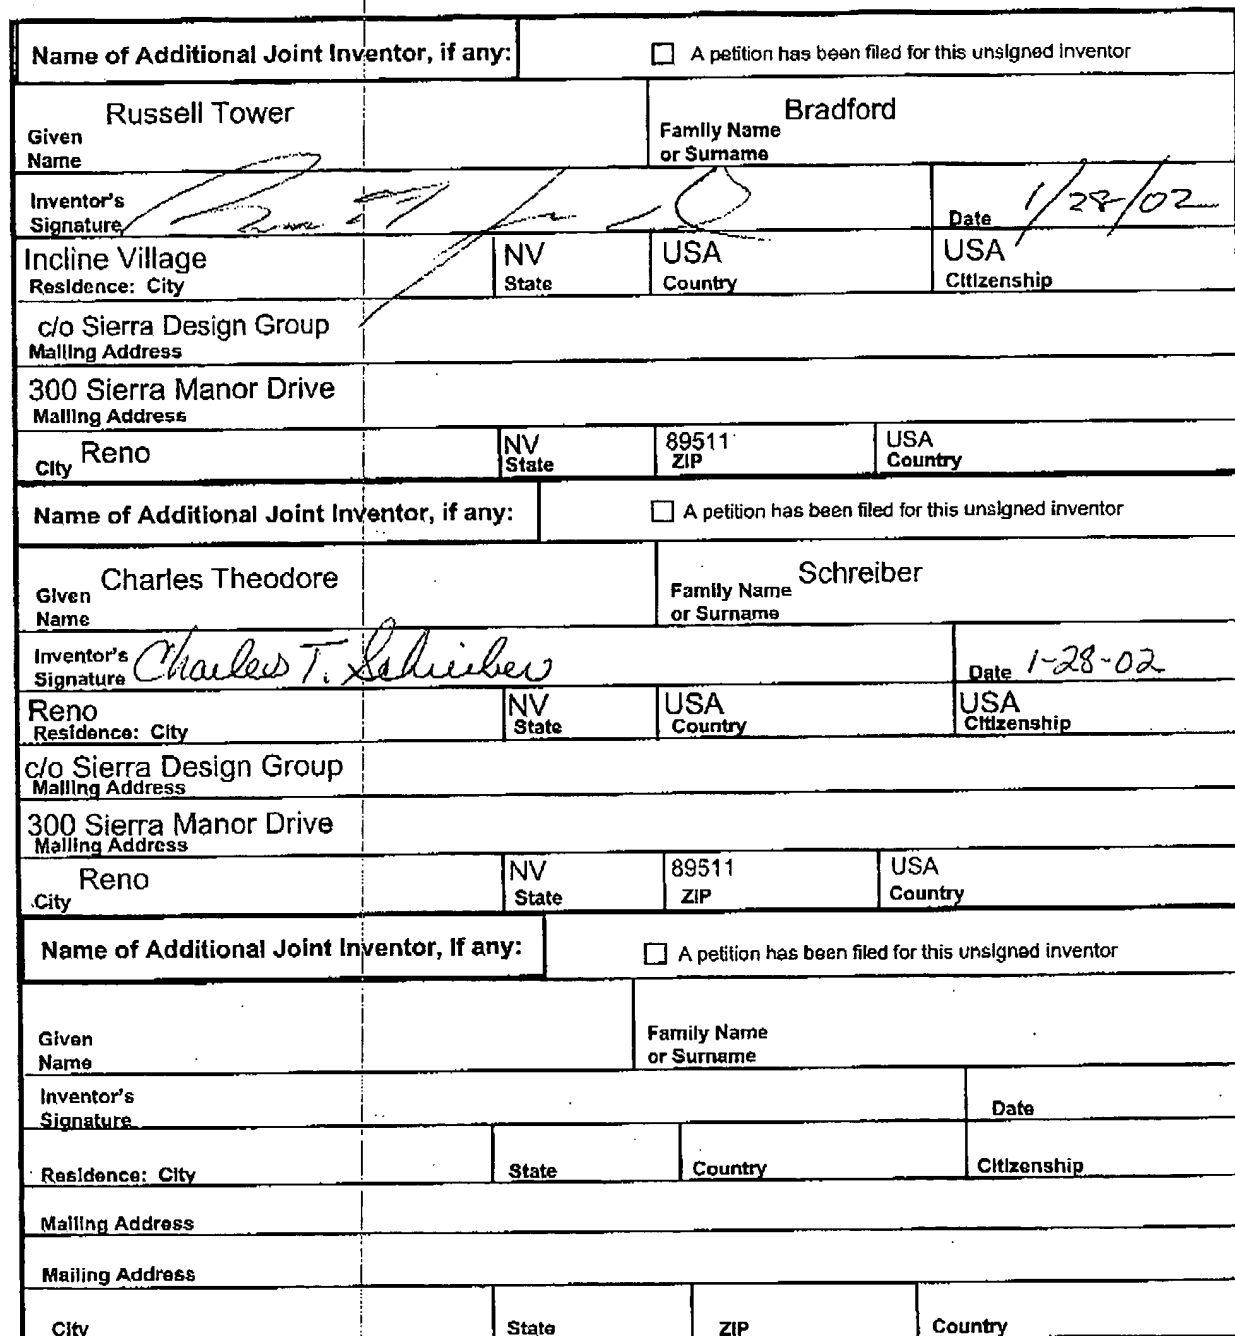 Name of Additional Joint Inventor, if any: A petition has been filed for this unsigned inventor
Russell Tower Bradford
Given Name Family Name or Surname
Inventor's Signature Date 1/28/02
Incline Village NV USA USA
Residence: City State Country Citizenship
c/o Sierra Design Group
Mailing Address
300 Sierra Manor Drive
Mailing Address
Reno NV 89511 USA
City State ZIP Country
Name of Additional Joint Inventor, if any: A petition has been filed for this unsigned inventor
Charles Theodore Schreiber
Given Name Family Name or Surname
Inventor's Signature Charles T. Schreiber Date 1-28-02
Reno NV USA USA
Residence: City State Country Citizenship
c/o Sierra Design Group
Mailing Address
300 Sierra Manor Drive
Mailing Address
Reno NV 89511 USA
City State ZIP Country
Name of Additional Joint Inventor, If any: A petition has been filed for this unsigned inventor
Given Name Family Name or Surname
Inventor's Signature Date
Residence: City State Country Citizenship
Mailing Address
Mailing Address
City State ZIP Country